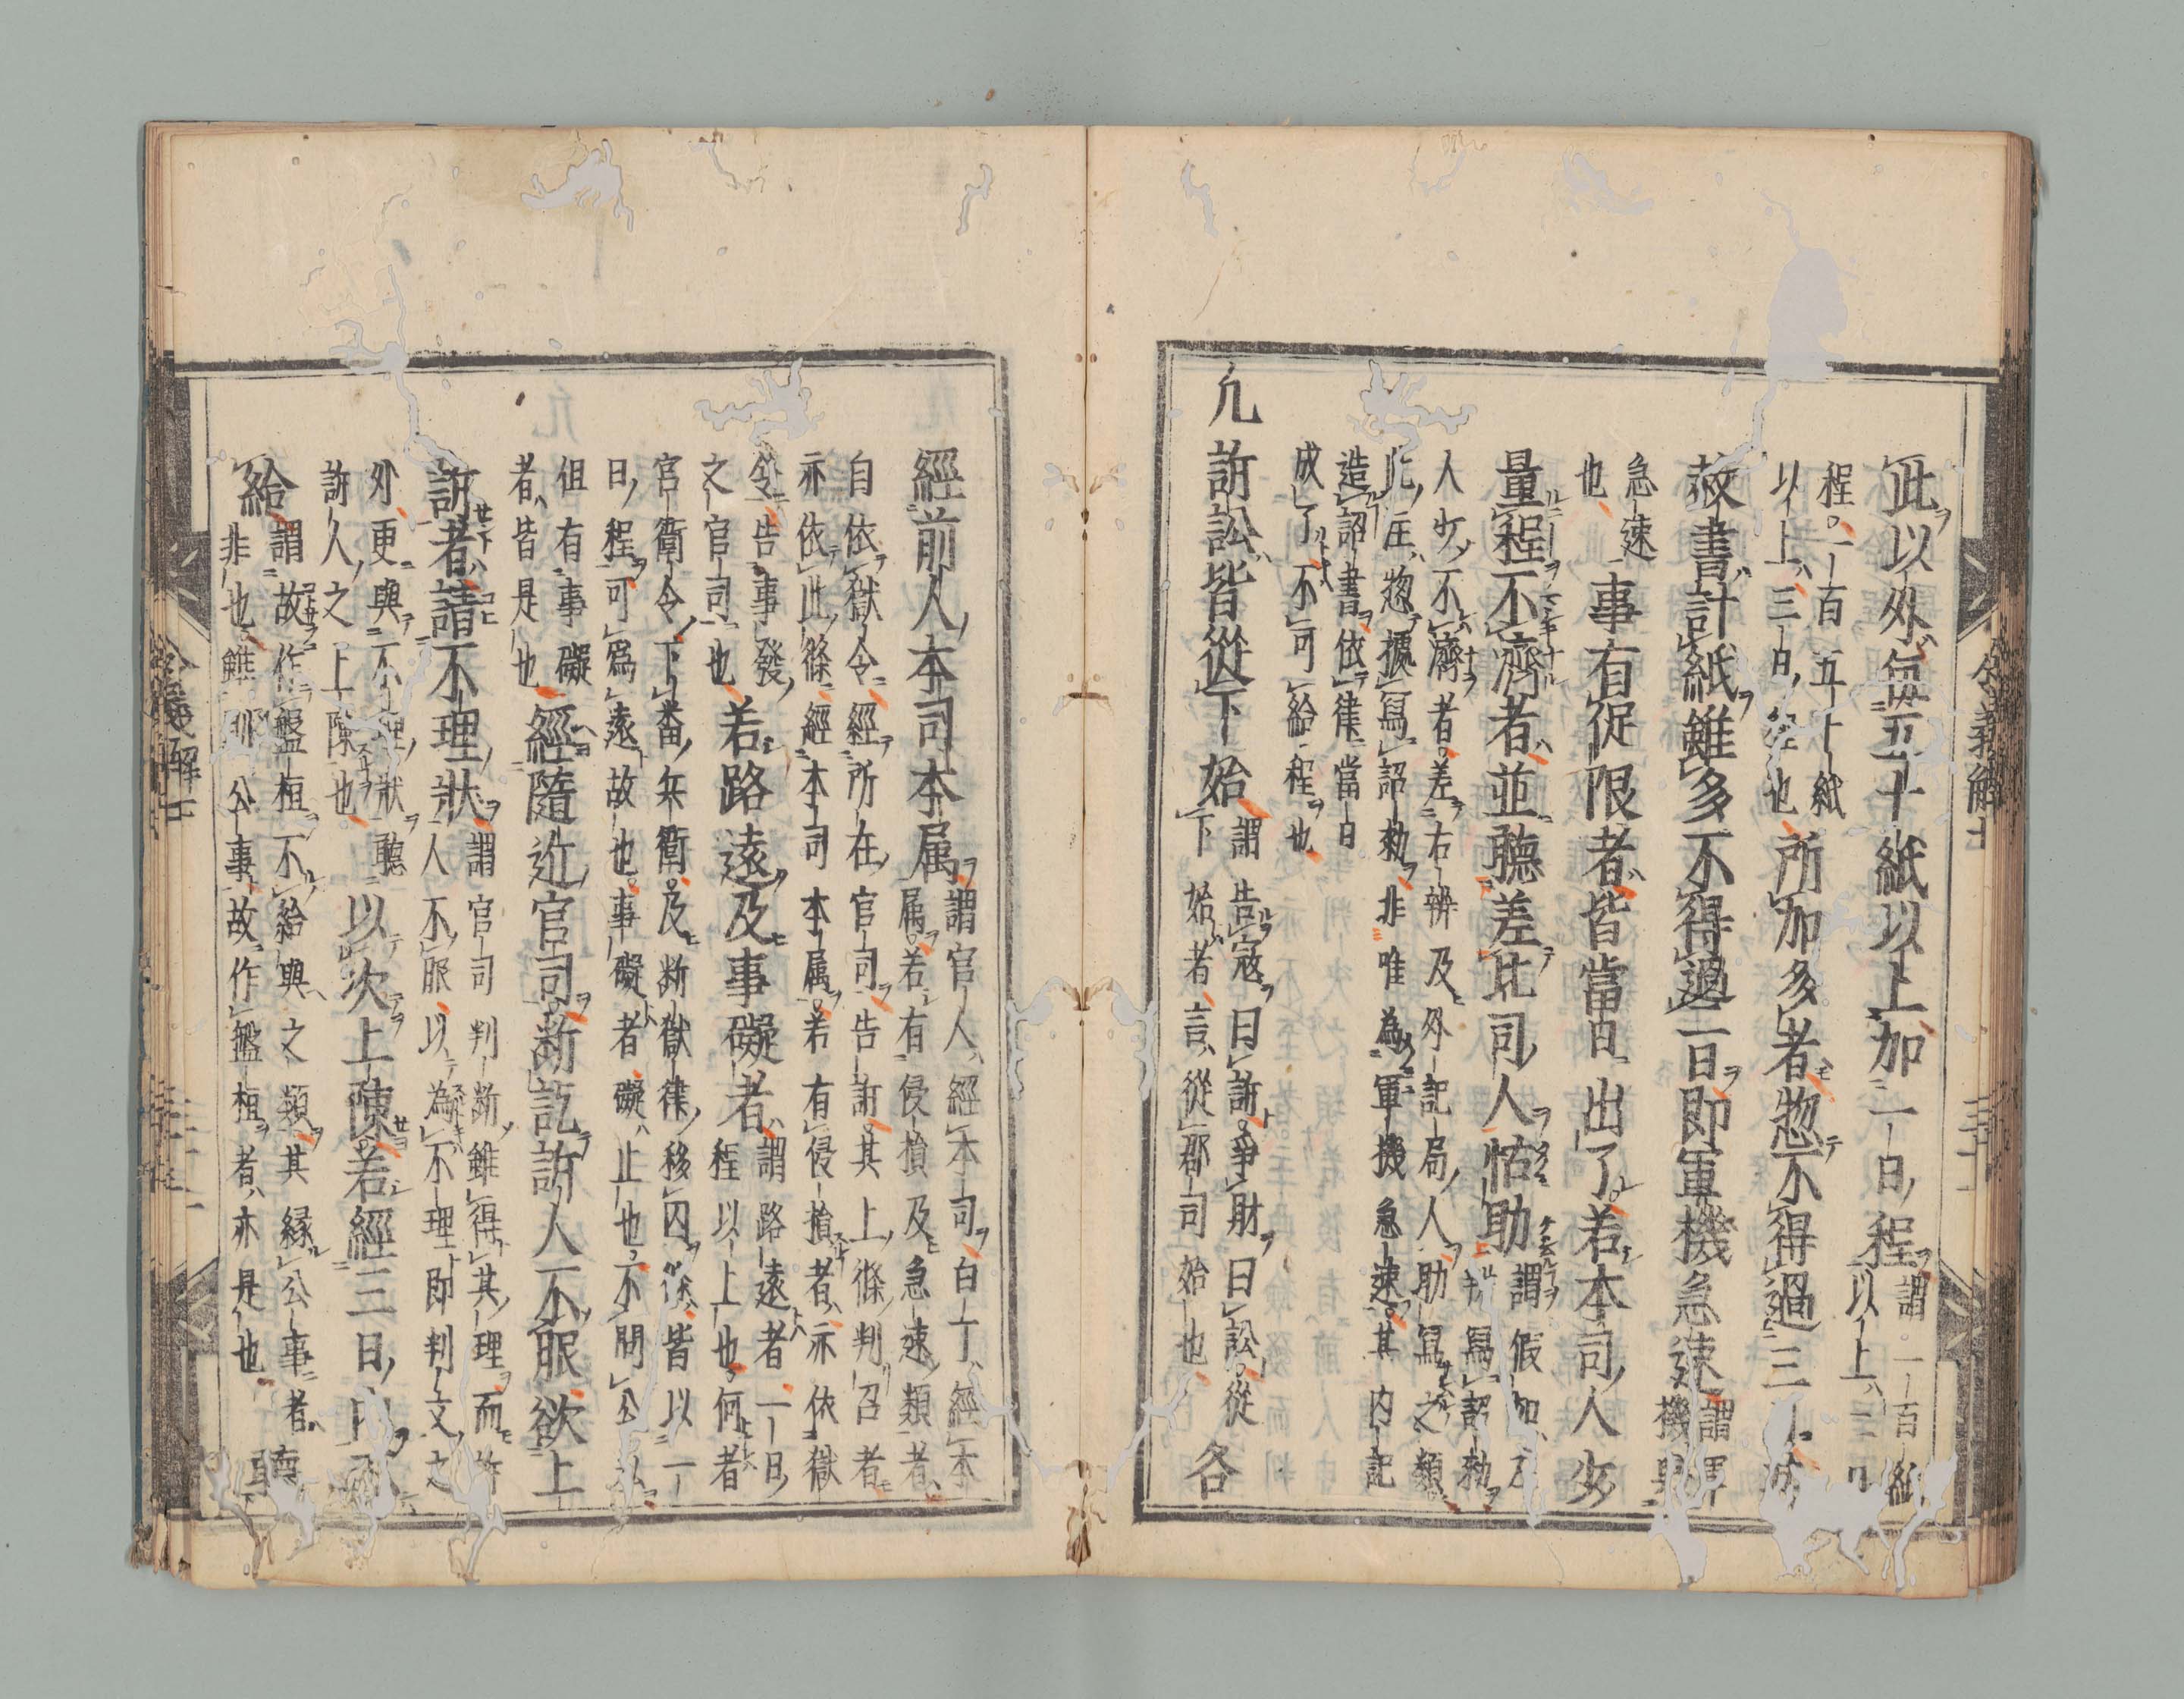 此以外毎五十紙以上加一日程謂一百紙以上二日
程一百五十紙
以上三日程也所加多者惣不得過三日其
赦書計紙雖多不得過一日即軍機急速謂軍機
急速
也事有促限者皆當日出了若本司人少
量程不濟者並聽差比司人怗助謂假如
判寫詔勅
人少不濟者差右辨及外記局人助寫之類
此注惣據寫詔勅非唯為軍機急速其内記
造詔書依律當日
成了不可給程也
凡訴訟皆從下始謂告寇曰訴爭財曰訟從
下始者言從郡司始也各
經前人本司本属謂官人經本司白丁經本
属若有侵損及急速類者
自依獄令經所在官司告訴其上條判召者
亦依此條經本司本属若有侵損者亦依獄
令告事發
之官司也若路遠及事礙者謂路遠者一日
程以上也何者
官衛令下番兵衛及断獄律移囚條皆以一
日程可為遠故也事礙者礙止也不問公私
但有事礙
者皆是也經隨近官司断訖訴人不服欲上
訴者請不理狀謂官司判断雖得其理而訴
人不服以為不理即判文之
外更與不理狀聽
訴人之上陳也以次上陳若經三日内不
給謂故作盤桓不給與之類其縁公事者
非也雖即公事故作盤桓者亦是也聽
令義解七